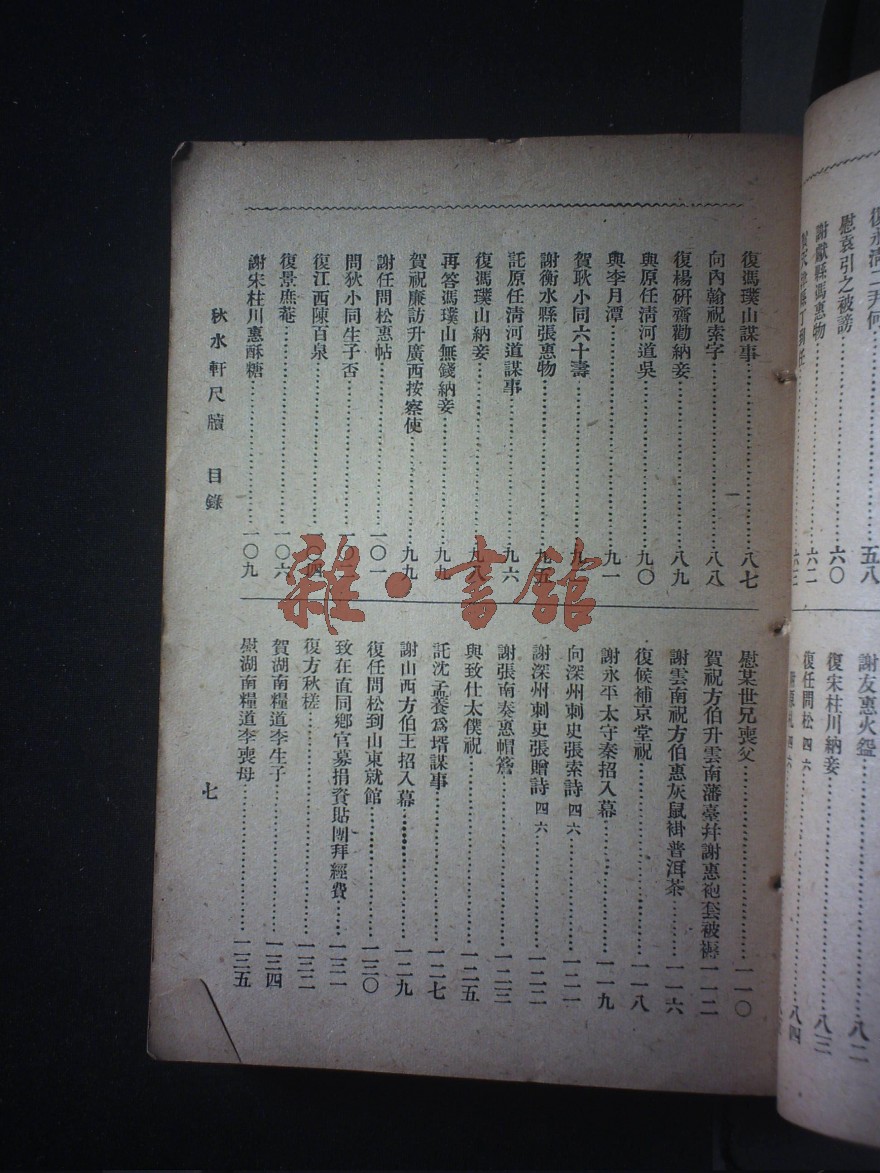 慰袁引之被謗……六〇
謝獻縣馮惠物……六二
謝友惠火盌……八二
復宋柱川納妾……八三
復任問松四六……八四
復馮璞山謀事……八七
向內翰祝索字……八八
復楊研齋勸納妾……八九
與原任清河道吳……九〇
與李月潭……九一
賀耿小同六十壽……九
謝衡水縣張惠物……九五
託原任清河道謀事……九六
復馮璞山納妾……九八
再答馮璞山無錢納妾……九九
賀祝廉訪升廣西按察使……九九
謝任問松惠帖……一〇一
問狄小同生子否……一〇
復江西陳百泉……一〇四
復景庶菴……一〇六
謝宋柱川惠酥糖……一〇九
慰某世兄喪父……一一〇
賀祝方伯升雲南藩臺幷謝惠袍套被褥一一二
謝雲南祝方伯惠灰鼠褂普洱茶……一一六
復候補京堂祝……一一八
謝永平太守秦招入幕……一一九
向深州刺史張索詩四六……一二一
謝深州刺史張贈詩四六……一二二
謝張南奏惠帽簷……一二三
與致仕太僕祝……一二五
託沈孟養爲壻謀事……一二七
謝山西方伯王招入幕……一二九
復任問松到山東就館……一三〇
致在直同鄉官募捐資貼團拜經費……一三一
復方秋槎……一三二
賀湖南糧道李生子……一三四
慰湖南糧道李喪母……一三五
秋水軒尺牘 目錄
七
雜·書館